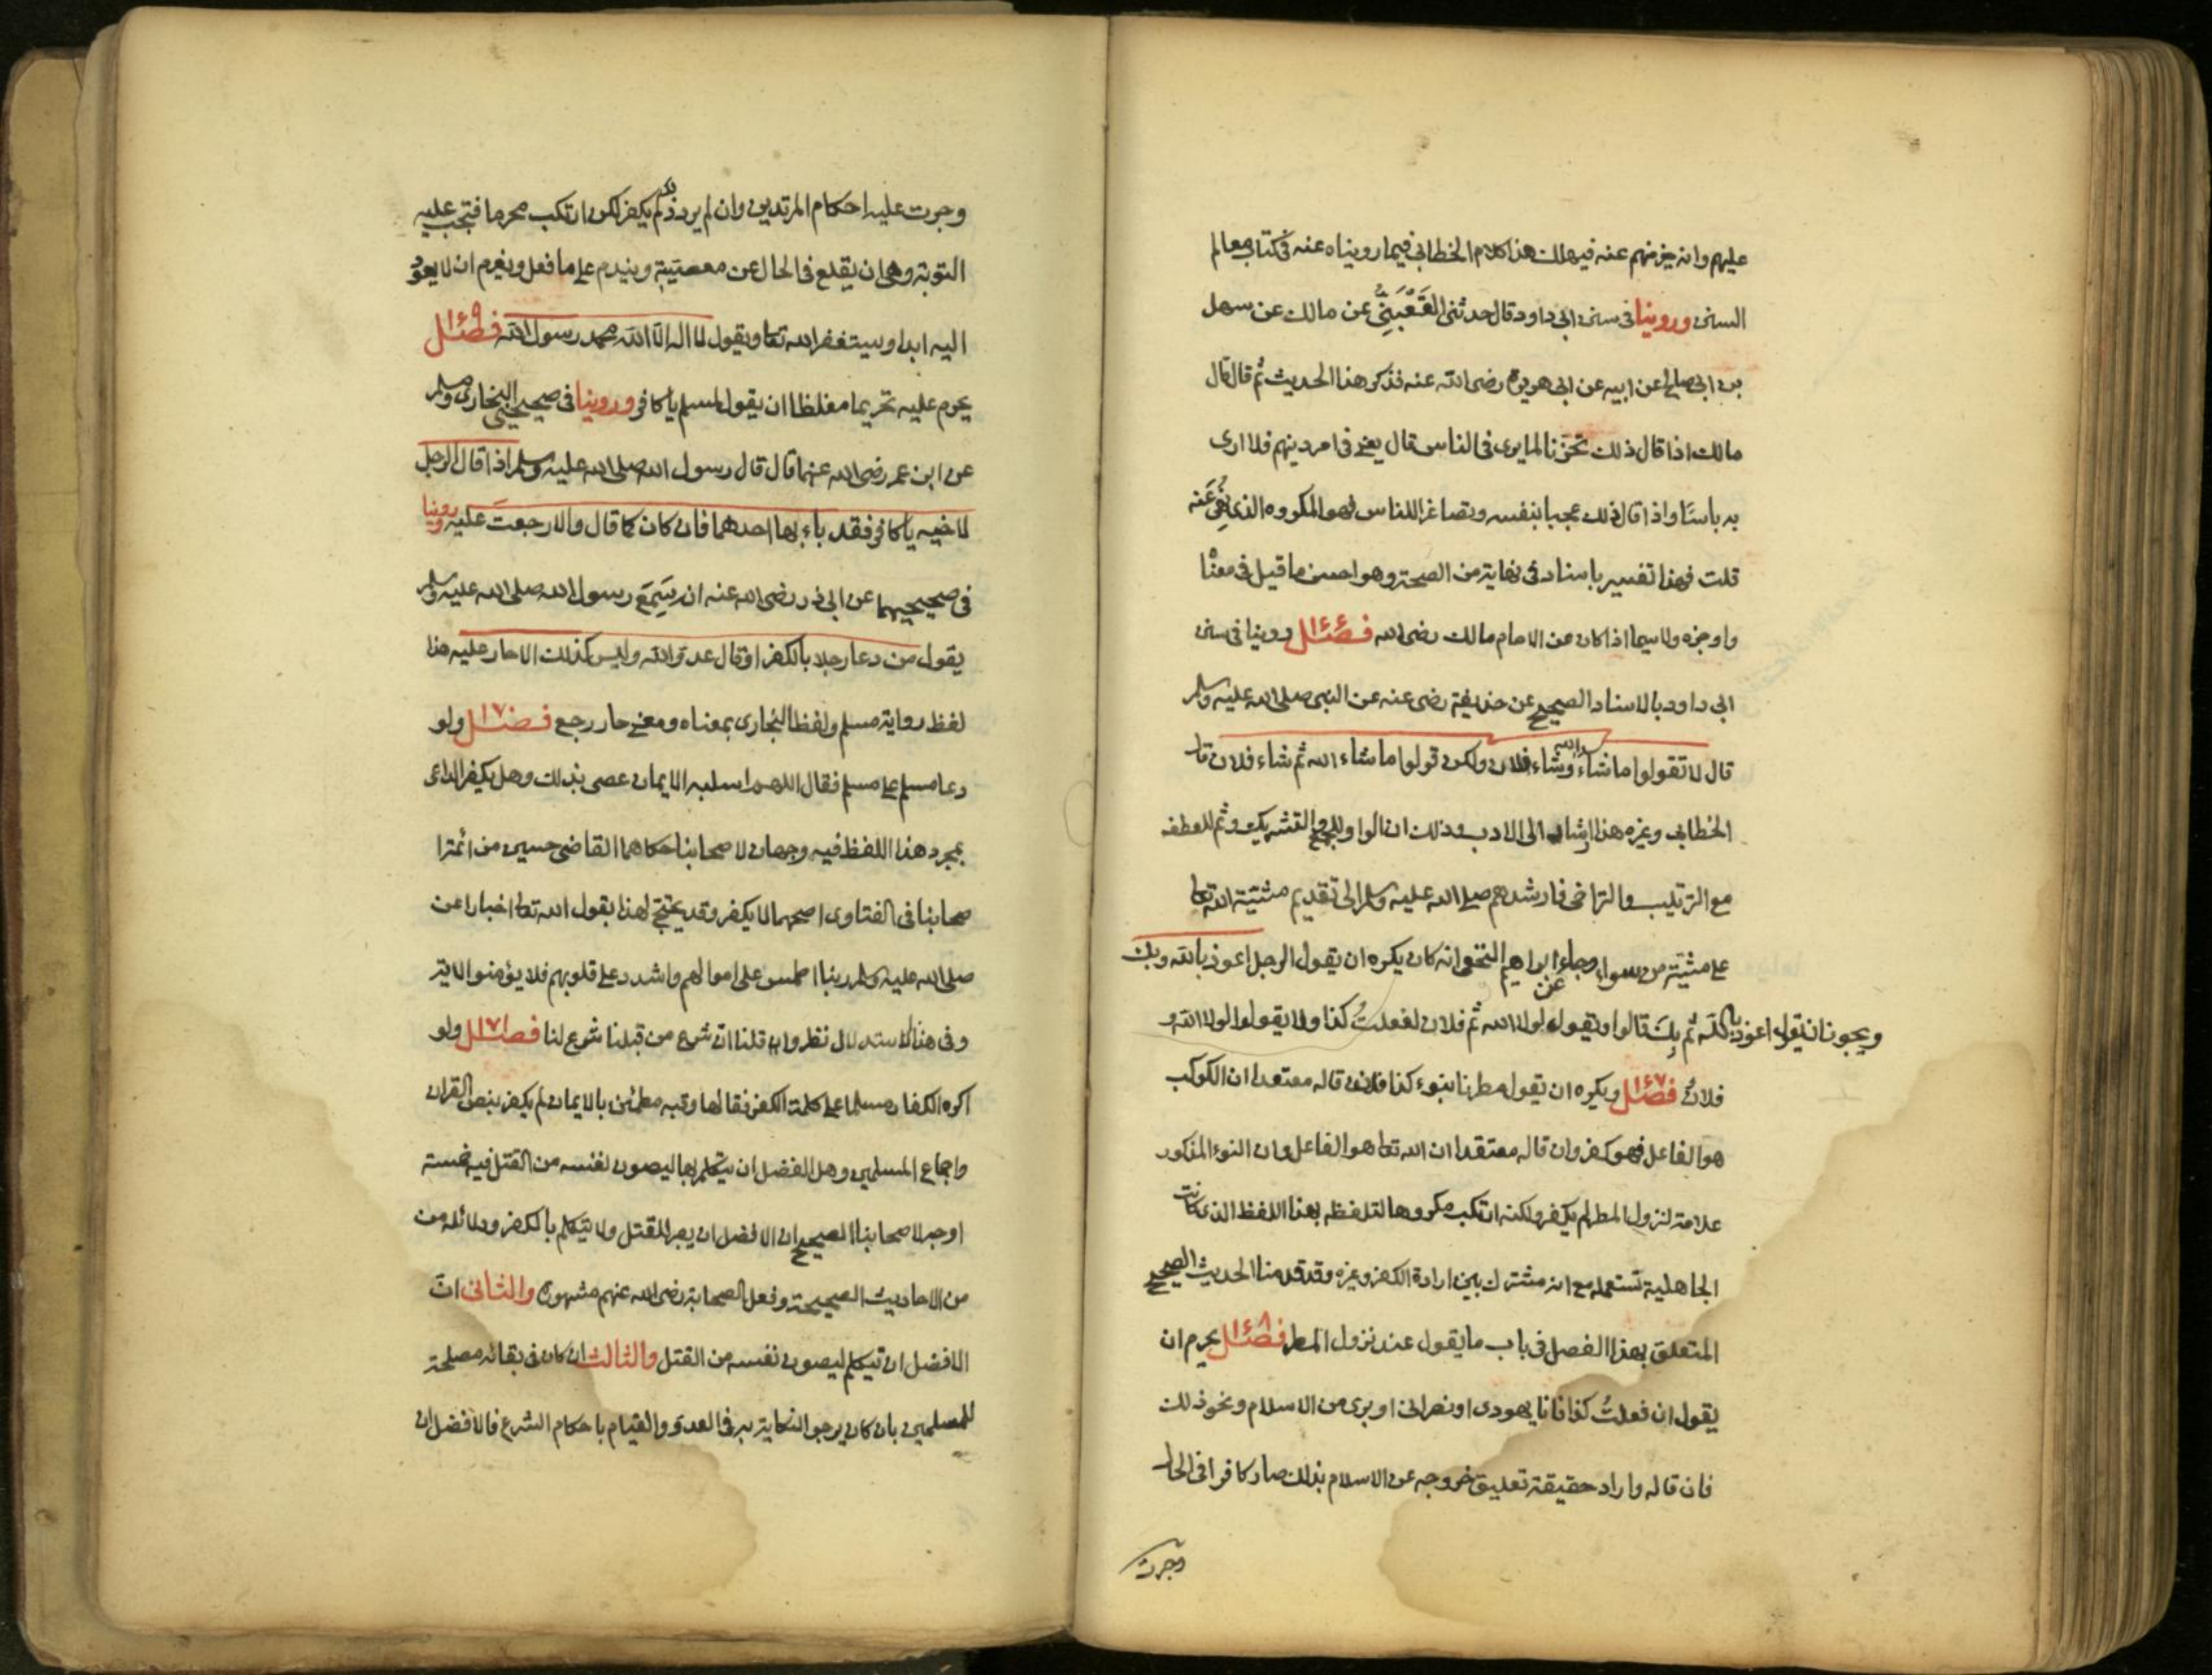 عليهم وانه خير منهم عنه فيهلك هذا كلام الخطابي فيما رويناه عنه في كتاب معالم
السنن وروينا في سنن ابي داود قال حدثني القَعْبَنِيُّ عن مالك عن سهل
بن ابي صالح عن ابيه عن ابي هريرة رضى الله عنه فذكر هذا الحديث ثم قال قال
مالك اذا قال ذلك تحزنا لما يرى في الناس قال يعني في امر دينهم فلا ارى
به باسًا واذا قال ذلك عجبا بنفسه وتصاغرا للناس فهو المكروه الذي نُهِيَ عَنه
قلت فهذا تفسير باسناد في نهاية من الصحة وهو احسن ما قيل في معنا
واوجزه ولا سيما اذا كان عن الامام مالك رضى الله فصل روينا في سنن
ابي داود بالاسناد الصحيح عن حذيفة رضى عنه عن النبي صلى الله عليه وسلم
قال لا تقولوا ما شاء الله وشاء فلان ولكن قولوا ما شاء الله ثم شاء فلان قال
الخطابي وغيره هذا ارشاد الى الادب وذلك ان الواو للجمع والتشريك وثم للعطف
مع الترتيب والتراخى فارشدهم صلى الله عليه وسلم الى تقديم مشيّة الله تعا
على مشيّة من سواه وجاء عن ابراهيم النخعى انه كان يكره ان يقول الرجل اعوذ بالله وبك
ويجوز ان يقول اعوذ بالله ثم بِكَ قالوا ويقول لولا الله ثم فلان لفعلتُ كذا ولا يقولوا لولا الله و
فلانٌ فصل ١٤٧ ويكره ان تقول مطرنا بنوء كذا فلان قاله معتقدا ان الكوكب
هو الفاعل فهو كفر وان قاله معتقدا ان الله تعا هو الفاعل وان النوء المذكور
علامة لنزول المطر لم يكفر ولكنه ارتكب مكروها لتلفظه بهذا اللفظ الذي كانت
الجاهلية تستعمله مع انه مشترك بين ارادة الكفر وغيره وقد قدمنا الحديث الصحيح
المتعلق بهذا الفصل في باب ما يقول عند نزول المطر فصل ١٤٨ يحرم ان
يقول ان فعلتُ كذا فانا يهودى او نصرانى او برى من الاسلام ونحو ذلك
فان قاله واراد حقيقة تعليق خروجه عن الاسلام بذلك صار كافرا في الحال
وجرت
وجرت عليه احكام المرتدين وان لم يرد ذلك لم يكفر لكن ارتكب محرما فتجب عليه
التوبة وهى ان يقلع في الحال عن معصيته ويندم على ما فعل ويعزم ان لا يعود
اليه ابدا ويستغفر الله تعا ويقول لا اله الا الله محمد رسول الله فصل ١٤٩
يحرم عليه تحريما مغلظا ان يقول لمسلم يا كافر وروينا في صحيحي البخارى ومسلم
عن ابن عمر رضى الله عنهما قال قال رسول الله صلى الله عليه وسلم اذا قال الرجل
لاخيه يا كافر فقد باء بها احدهما فان كان كما قال والا رجعت عليه وروينا
في صحيحيهما عن ابي ذر رضى الله عنه انه سَمِعَ رسول الله صلى الله عليه وسلم
يقول من دعا رجلا بالكفر او قال عدو الله وليس كذلك الا حار عليه هذا
لفظ رواية مسلم ولفظ البخارى بمعناه ومعنى حار رجع فصل ١٧ ولو
دعا مسلم على مسلم فقال اللهم اسلبه الايمان عصى بذلك وهل يكفر الداعى
بمجرد هذا اللفظ فيه وجهان لاصحابنا حكاهما القاضى حسين من ائمة ا
صحابنا في الفتاوى اصحهما لا يكفر وقد يحتج لهذا بقول الله تعا اخبارا عن
صلى الله عليه وسلم ربنا اطمس على اموالهم واشدد على قلوبهم فلا يؤمنوا الاية
وفى هذا الاستدلال نظر وان قلنا ان شرع من قبلنا شرع لنا فصل ١٧١ ولو
اكره الكفار مسلما على كلمة الكفر فقالها وقبه مطمئن بالايمان لم يكفر بنص القران
واجماع المسلمين وهل الفضل ان يتكلم بها ليصون لنفسه من القتل فيه خمسة
اوجه لاصحابنا الصحيح ان الافضل ان يصبر للقتل ولا يتكلم بالكفر ودلائله من
من الاحاديث الصحيحة وفعل الصحابة رضى الله عنهم مشهورة والثانى انّ
الافضل ان تيكلم ليصون نفسه من القتل والثالث ان كان في بقائه مصلحة
للمسلمين بان كان يرجو النكاية به في العدو والقيام باحكام الشرع فالافضل ان